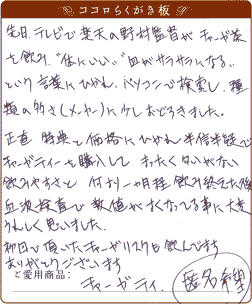 ココロらくがき板
先日テレビで楽天の野村監督がチャーガ茶
を飲み、"体にいい" "血がサラサラになる"
という言葉にひかれ、パソコンで検索し、種
類の多さ(メーカー)に少しおどろきました。
正直 特典と価格にひかれ半信半疑で
チャーガティーを購入して、まったくくせがない
飲みやすさと 何より一ヶ月程飲み終えた後
血液検査で数値が良くなってる事に大変
うれしく思いました。
昨日で頂いたチャーガリスクも飲んでます
ありがとうございます
ご愛用商品:
チャーガティ
匿名希望